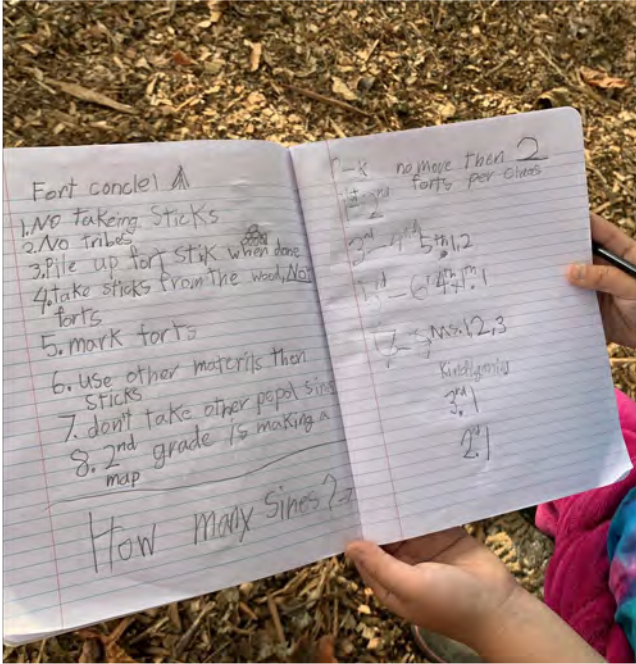 Fort conclel
1. No takeing Sticks
2. No tribes
3. Pile up fort stik when done
4. take sticks from the wood, Not
forts
5. mark forts
6. use other materils then
sticks
7. don't take other pepol sins
8. 2nd grade is making a
map
How many sines?
P-K no more then 2
forts per class
3rd
5th. 1, 2
6 4th. 1
Ms. 1, 2, 3
3rd. 1
2d. 1